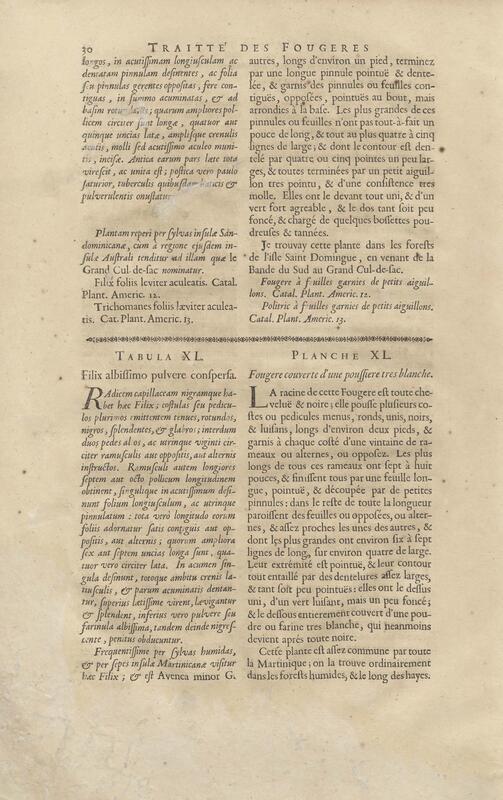 30 TRAITTÉ DES FOUGERES
longos, in acutissimam longiusculam ac
dentatam pinnulam desinentes, ac folia
seu pinnulas gerentes oppositas, fere con-
tiguas, in summo acuminatas, & ad
basim rotundatas; quarum ampliores pol-
licem circiter sunt longæ, quatuor aut
quinque uncias latæ, amplisque crenulis
acutis, molli sed acutissimo aculeo muni-
tis, incisæ. Antica earum pars læte tota
virescit, ac unita est; postica vero paulo
saturior, tuberculis quibusdam
pulverulentis onustatur.
Plantam reperi per sylvas insulæ San-
dominicanæ, cum à regione ejusdem in-
sulæ Australi tenditur ad illam quæ le
Grand Cul-de-sac nominatur.
Filix foliis leviter aculeatis. Catal.
Plant. Americ. 12.
Trichomanes foliis læviter aculea-
tis. Cat. Plant. Americ. 13.
autres, longs d'environ un pied, terminez
par une longue pinnule pointuë & dente-
lée, & garnis des pinnules ou feuilles con-
tiguës, opposées, pointuës au bout, mais
arrondies à la base. Les plus grandes de ces
pinnules ou feuilles n'ont pas tout-à-fait un
pouce de long, & tout au plus quatre à cinq
lignes de large; & dont le contour est den-
telé par quatre ou cinq pointes un peu lar-
ges, & toutes terminées par un petit aiguil-
lon tres pointu, & d'une consistence tres
molle. Elles ont le devant tout uni, & d'un
vert fort agreable, & le dos tant soit peu
foncé, & chargé de quelques bossettes pou-
dreuses & tannées.
Je trouvay cette plante dans les forests
de l'isle Saint Domingue, en venant de la
Bande du Sud au Grand Cul-de-sac.
Fougere à feuilles garnies de petits aiguil-
lons. Catal. Plant. Americ. 12.
Politric à feuilles garnies de petits aiguillons.
Catal. Plant. Americ. 13.
TABULA XL.
Filix albissimo pulvere conspersa.
RAdicem capillaceam nigramque ha-
bet hæc Filix; costulas seu pedicu-
los plurimos emittentem tenues, rotundos,
nigros, splendentes, & glabros; interdum
duos pedes al os, ac utrinque viginti cir-
citer ramusculis aut oppositis, aut alternis
instructos. Ramusculi autem longiores
septem aut octo pollicum longitudinem
obtinent, singulique in acutissimum desi-
nunt folium longiusculum, ac utrinque
pinnulatum: tota vero longitudo eorum
foliis adornatur satis contiguis aut op-
positis, aut alternis; quorum ampliora
sex aut septem uncias longa sunt, qua-
tuor vero circiter lata. In acumen sin-
gula desinunt, totoque ambitu crenis la-
tiusculis, & parum acuminatis dentan-
tur, superius lætissime virent, lævigantur
& splendent, inferius vero pulvere seu
farinula albissima, tandem deinde nigres-
cente, penitus obducuntur.
Frequentissime per sylvas humidas,
& per sepes insulæ Martinicanæ visitur
hæc Filix; & est Avenca minor G.
PLANCHE XL.
Fougere couverte d'une poussiere tres blanche.
LA racine de cette Fougere est toute che-
veluë & noire; elle pousse plusieurs co-
stes ou pedicules menus, ronds, unis, noirs,
& luisans, longs d'environ deux pieds, &
garnis à chaque costé d'une vintaine de ra-
meaux ou alternes, ou opposez. Les plus
longs de tous ces rameaux ont sept à huit
pouces, & finissent tous par une feuille lon-
gue, pointuë, & découpée par de petites
pinnules: dans le reste de toute la longueur
paroissent des feuilles ou opposées, ou alter-
nes, & assez proches les unes des autres, &
dont les plus grandes ont environ six à sept
lignes de long, sur environ quatre de large.
Leur extrémité est pointuë, & leur contour
tout entaillé par des dentelures assez larges,
& tant soit peu pointuës: elles ont le dessus
uni, d'un vert luisant, mais un peu foncé;
& le dessous entierement couvert d'une pou-
dre ou farine tres blanche, qui neanmoins
devient aprés toute noire.
Cette plante est assez commune par toute
la Martinique; on la trouve ordinairement
dans les forests humides, & le long des hayes.